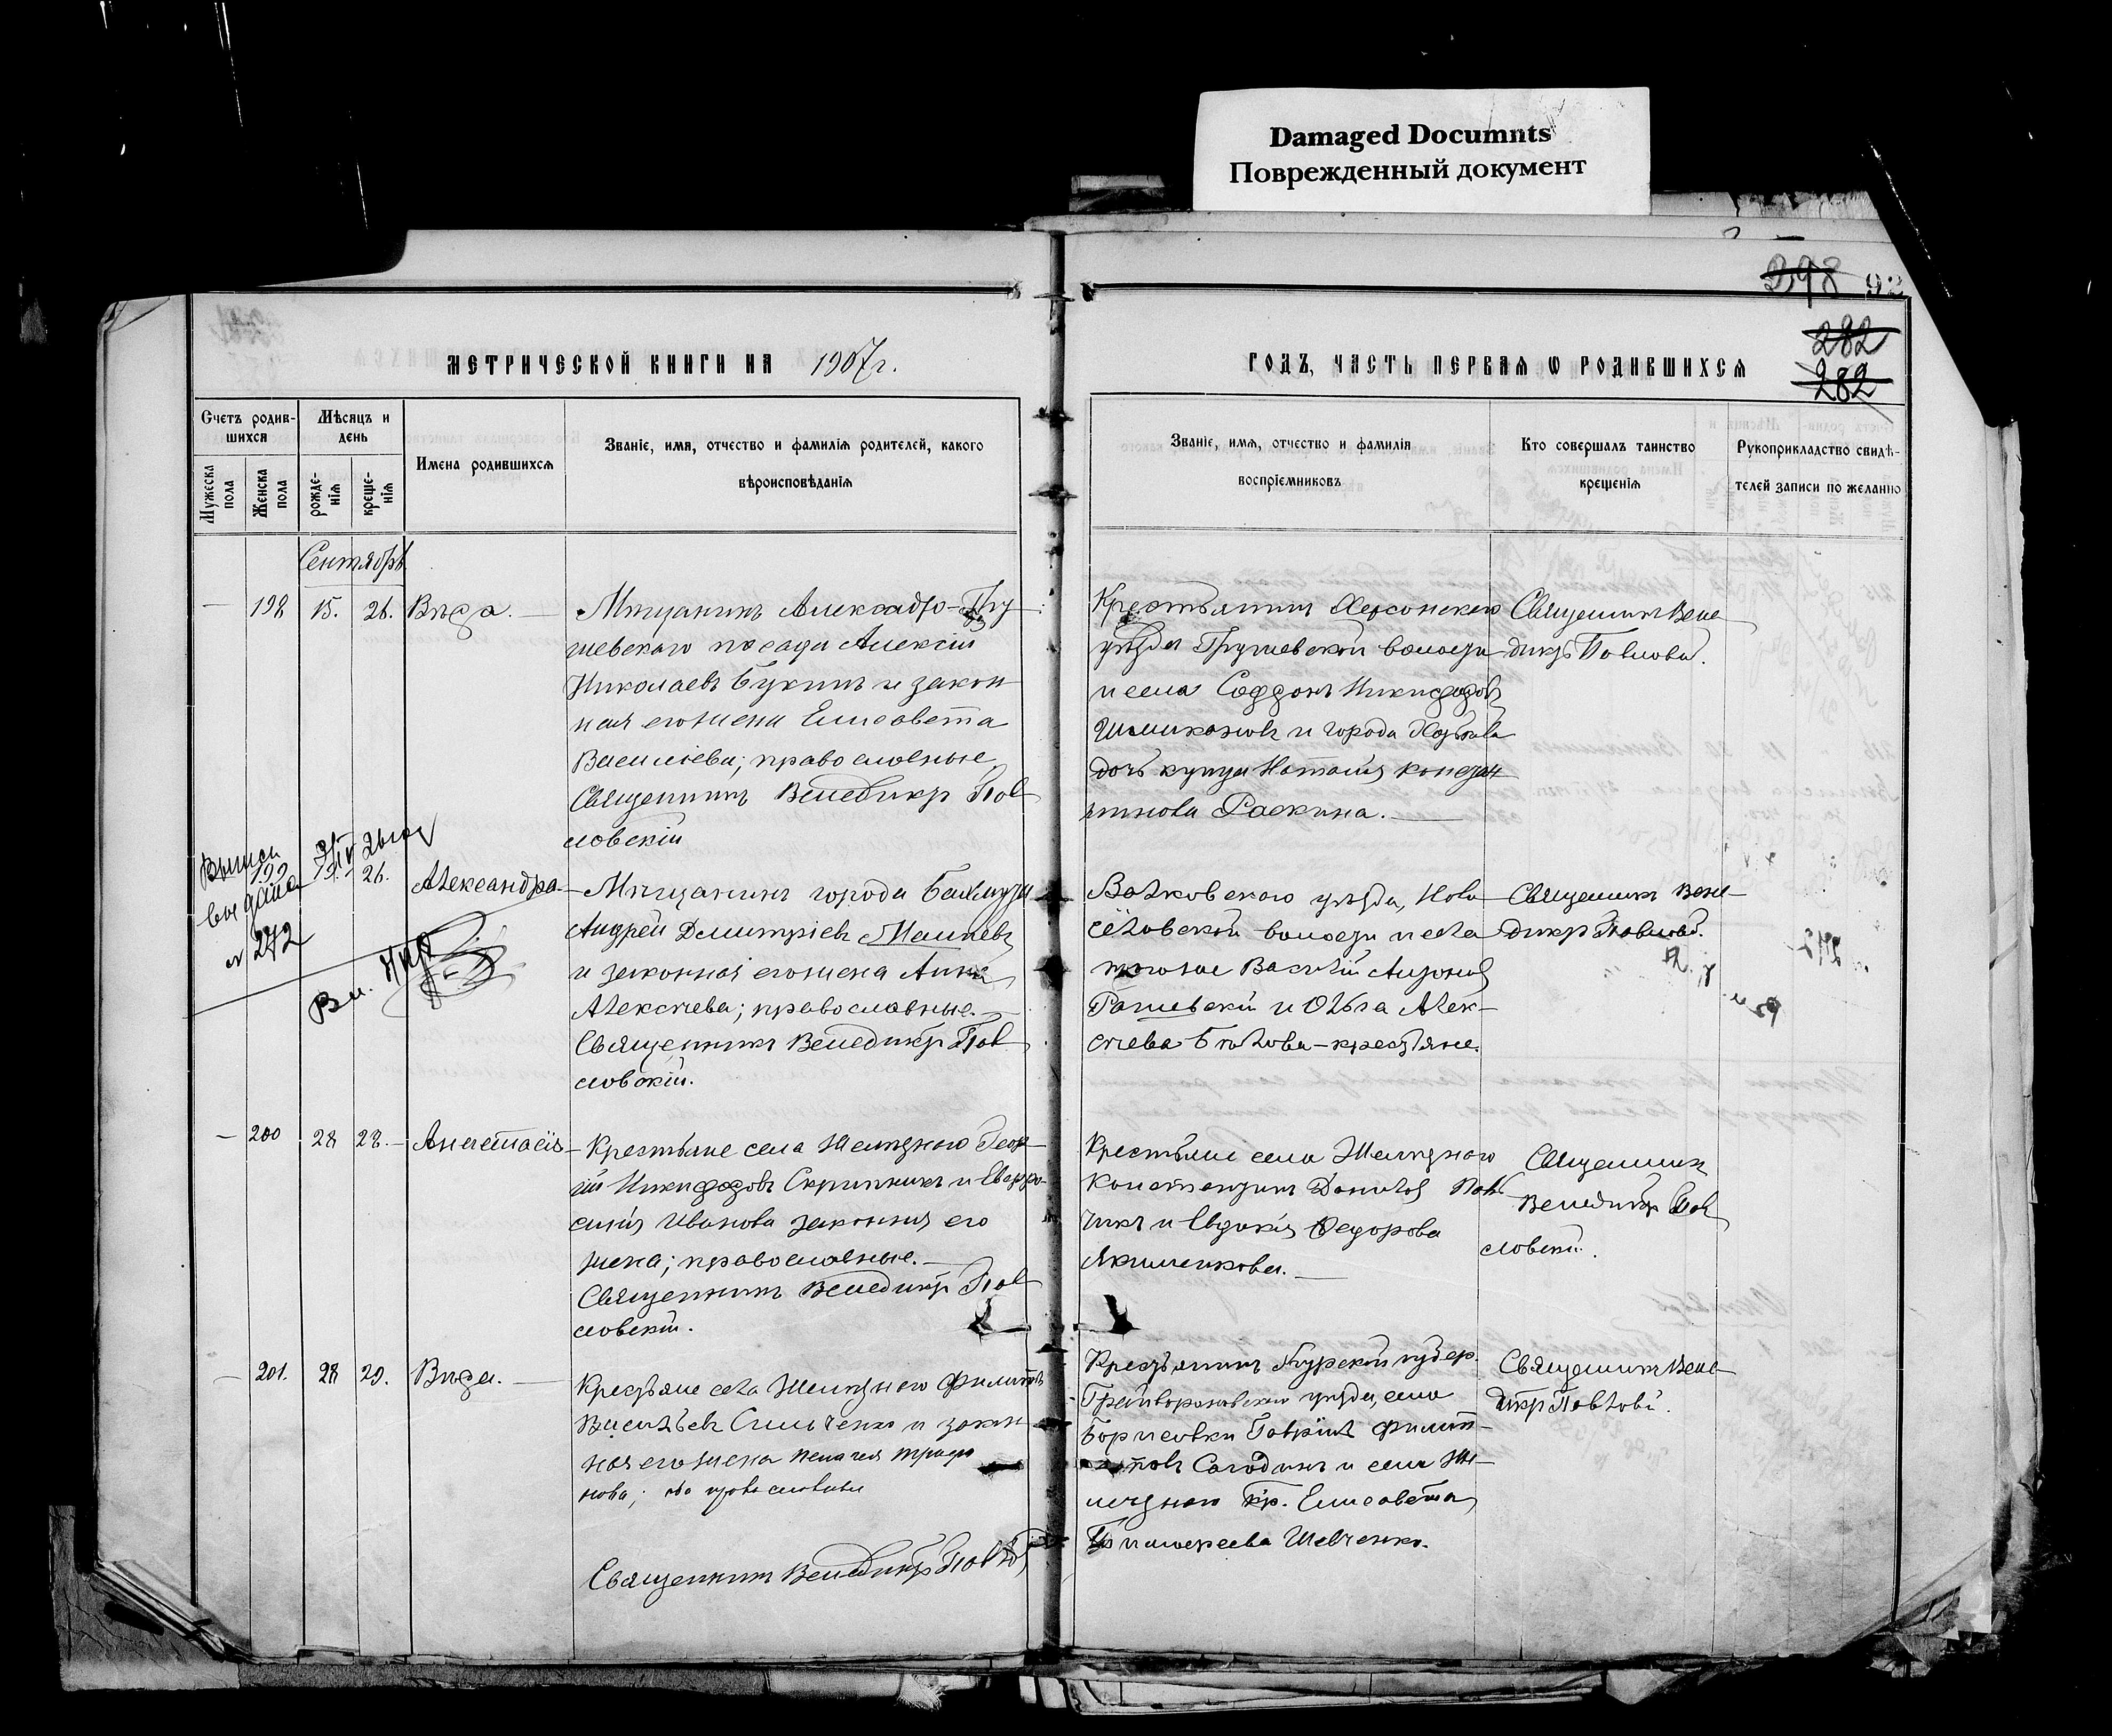 Damaged Documnts
Поврежденный документ
398 92
282
282
МЕТРИЧЕСКОЙ КНИГИ НА 1907 г.
ГОДЪ, ЧАСТЬ ПЕРВАЯ Ѡ РОДИВШИХСѦ
Счетъ родив-
шихся
Мѣсяцъ и
день
Имена родившихсѧ
Званіе, имя, отчество и фамиліѧ родителей, какого
вѣроисповѣданіѧ
Мужеска
пола
Женска
пола
рожде-
нія
креще-
нія
Званіе, имѧ, отчество и фамилія
воспріемниковъ
Кто совершалъ таинство
крещенія
Рукоприкладство свидѣ-
телей записи по желанію
Сентябрь
— 198 15. 26. Вѣра. —
Мѣщанинъ Александро-Гру
шевскаго посада Алексій
Николаевъ Букинъ и закон
ная его жена Елисавета
Василіева; православные,
Священникъ Венедиктъ Пав
ловскій
Крестьянинъ Херсонскаго
уѣзда Грушевской волости
и села Софронъ Никифоровъ
и города Харькова
дочь купца Наталія Констан
тинова Раскина. —
Священникъ Вене
диктъ Павловъ.
Выписъ
выдана
№ 272
199 26. Александра —
Мѣщанинъ города Бахмута
Андрей Димитріевъ
и законная его жена Анна
Алексѣева; православные. —
Священникъ Венедиктъ Пав
ловскій.
Валковскаго уѣзда, Ново
селовской волости и села
того же Василій Антоновъ
Рашевскій и Ольга Алек-
сѣева Бѣлова — крестьяне.
Священникъ Вене-
диктъ Павловъ.
— 200 28 28. — Анастасія —
Крестьяне села Желѣзнаго Геор
гій Никифоровъ Скрипникъ и Евфро-
синія Иванова законная его
жена; православные. —
Священникъ Венедиктъ Пав
ловскій.
Крестьяне села Желѣзнаго
Константинъ Даниловъ
и Евдокія Ѳедорова
Якименкова. —
Священникъ
Венедиктъ Пав
ловскій.
— 201. 28 29. Вѣра. —
Крестьяне села Желѣзнаго Филиппъ
Васильевъ Сильченко и закон
ная его жена Пелагея Трифо
нова; оба православные
Священникъ Венедиктъ Павлов
Крестьянинъ Курской губер.
Грайворонскаго уѣзда, села
Борисовки Гавріилъ Филип-
повъ и села Же-
лѣзнаго кр. Елисавета
Тимоѳеева Шевченко.
Священникъ Вене
диктъ Павловъ.